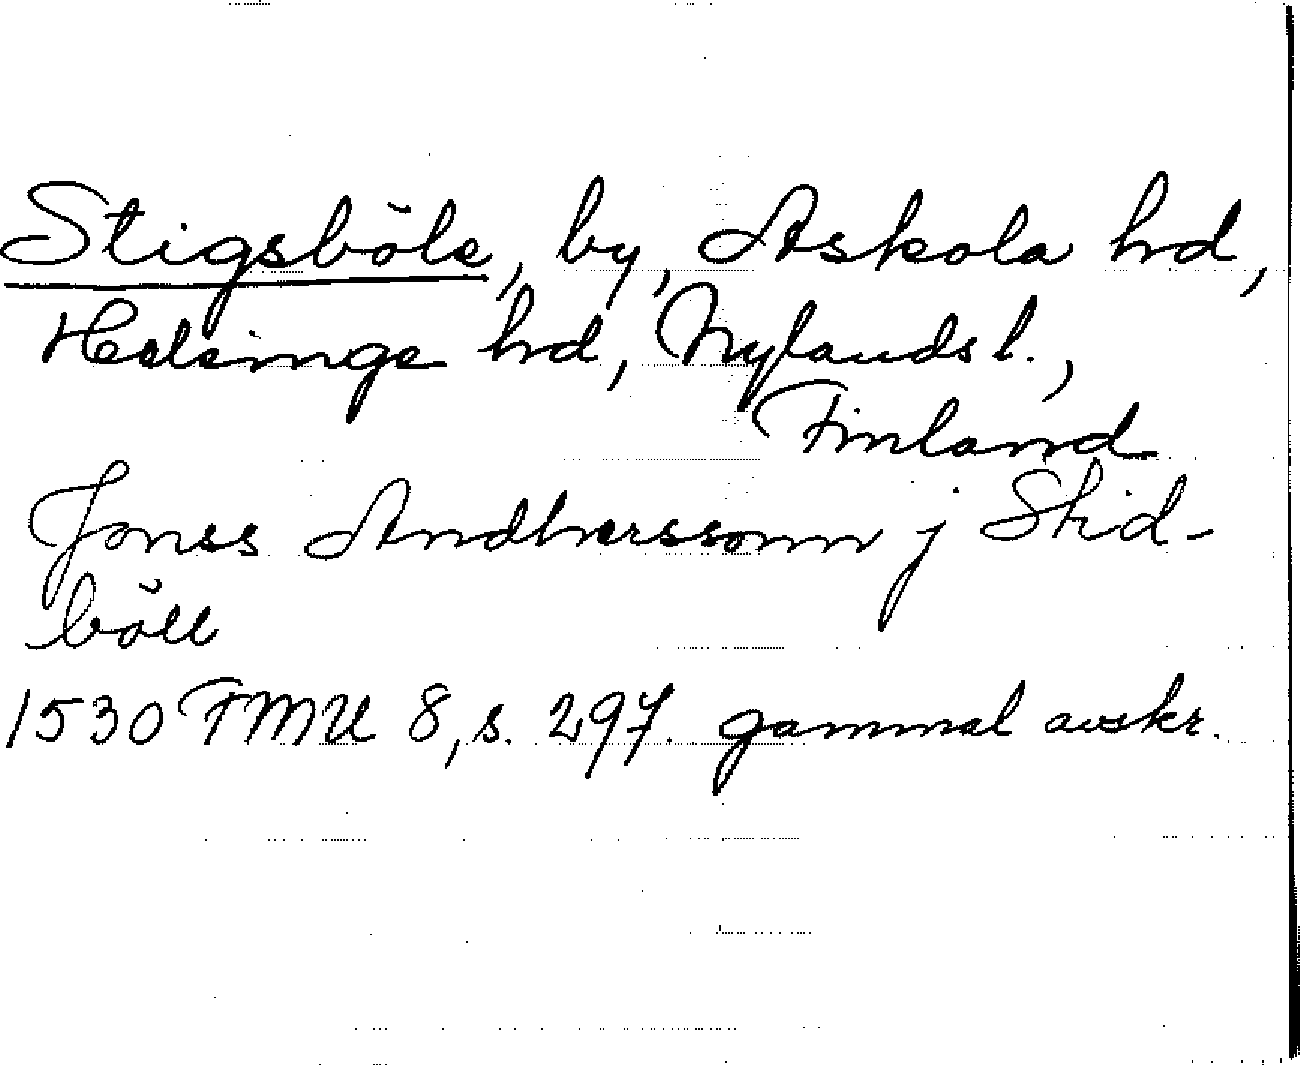 Stigsböle, by, Askola hd,
Helsinge hd, Nylands l.,
Finland
Jonss Andherssonn j Stid-
böll
1530 FMU 8, s. 297. gammal avskr.